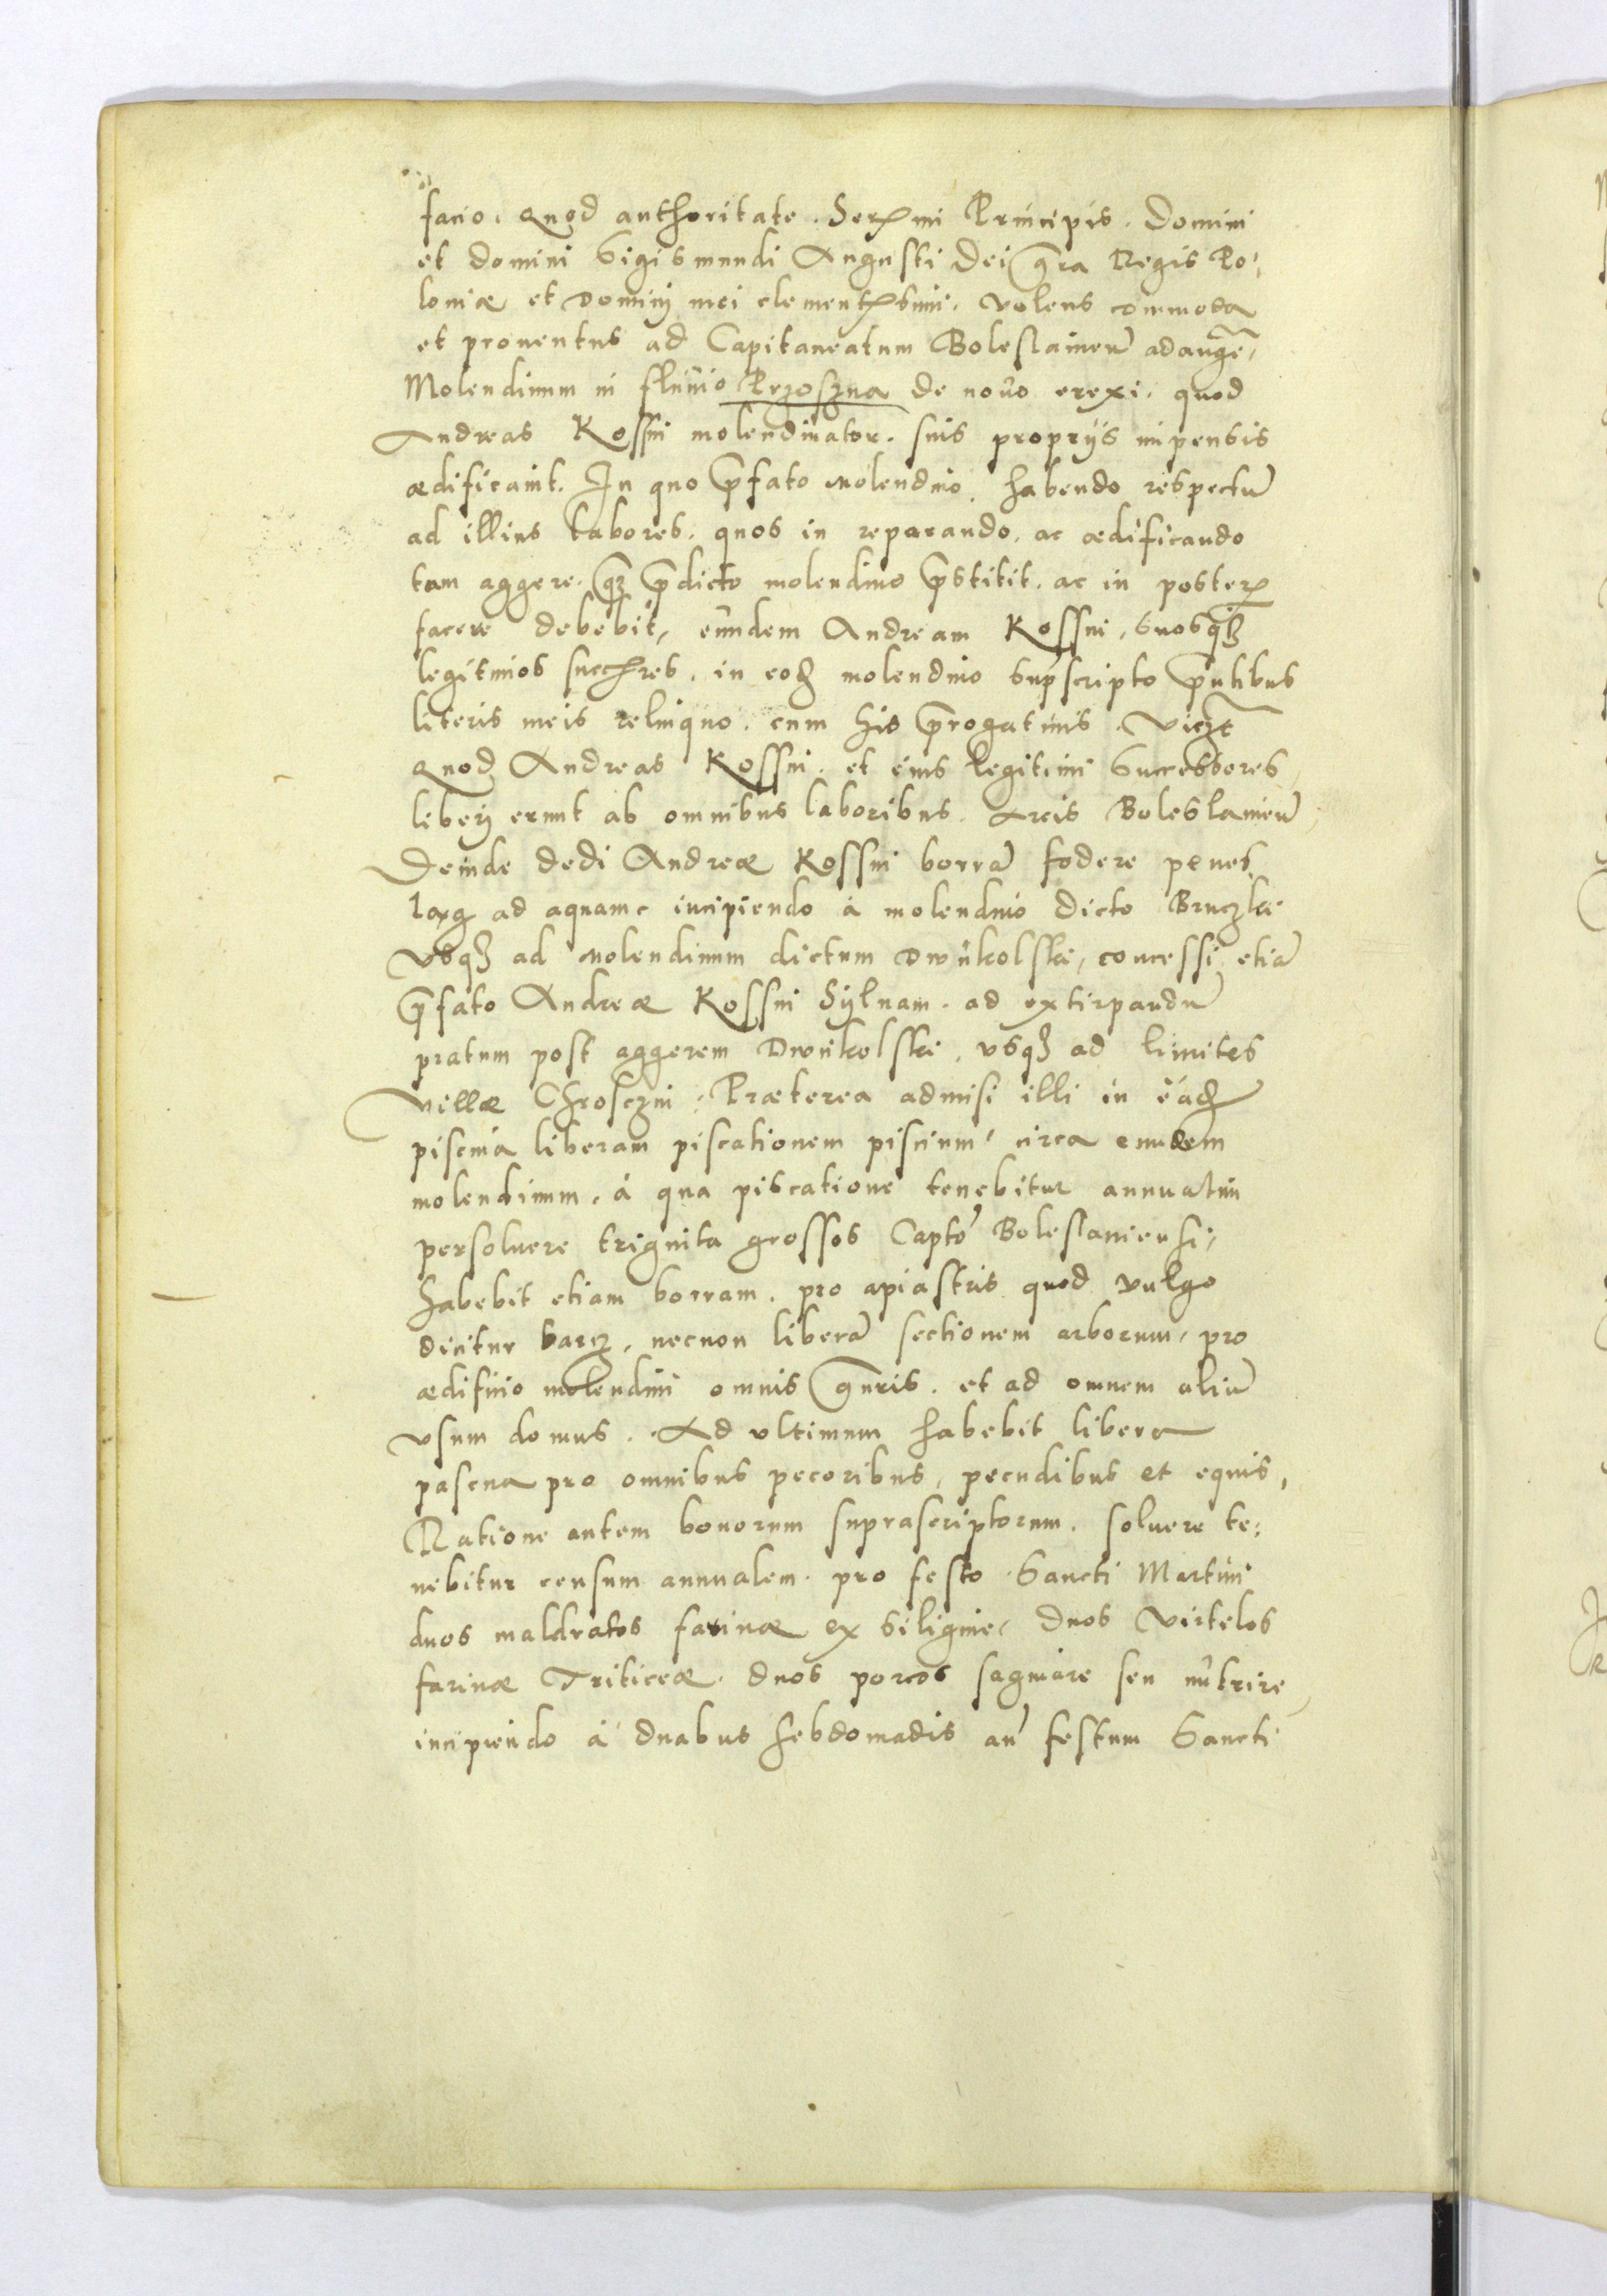 facio. Quod authoritate. Ser mi Principis. Domini
et domini Sigismundi Augusti Dei gra Regis Po:
loniæ et Dominij mei clement simi. volens commoda
et prouentus ad Capitaneatum Boleslauien̄ adauge͂,
Molendinum in fluuio Przoszna de nouo erexi. quod
Andreas Kossni molendinator. suis proprijs impensis
ædificauit. In quo p̄fato Molendino. habendo respectū
ad illius labores. quos in reparando. ac ædificando
tam aggere. q̄ꝫ p̄dicto molendino p̄stitit. ac in poster
facere debebit, eundem Andream Kossni, suosqꝫ
legitimos succ res. in eod molendino suprscripto p̄ntibus
literis meis relinquo. cum his p̄rogatiuis. viczt
Quod Andreas Kossni. et eius legitimi Successores
leberj erunt ab omnibus laboribus. Arcis Boleslauien̄
Deinde dedi Andreæ Kossni borrā fodere penes
ad aquam incipiendo à molendino dicto Bruczkie
vsqꝫ ad Molendinum dictum Dwukolskie, concessi etiā
p̄fato Andreæ Kossni Syluam. ad extirpandū
pratum post aggerem Dwukolskie, vsqꝫ ad limites
villæ Chrosczni. Præterea admisi illi in eād
piscina liberam piscationem piscium, circa eundem
molendinum. à qua piscatione tenebitur annuatim
persoluere triginta grossos Capto Boleslauiensi,
habebit etiam borram. pro apiastris quod vulgo
dicitur barcz, necnon liberā sectionem arborum, pro
ædificio molendini omnis gn̄ris. et ad omnem aliū
vsum domus. Ad vltimum habebit libera
pascua pro omnibus pecoribus, pecudibus et equis,
Ratione autem bonorum suprascriptorum. soluere te:
nebitur censum annualem. pro festo Sancti Martini
duos maldratos farinæ ex siligine, duos virtelos
farinæ Triticeæ. duos porcos saginare seu nutrire
incipiendo à duabus hebdomadis an̄ festum Sancti